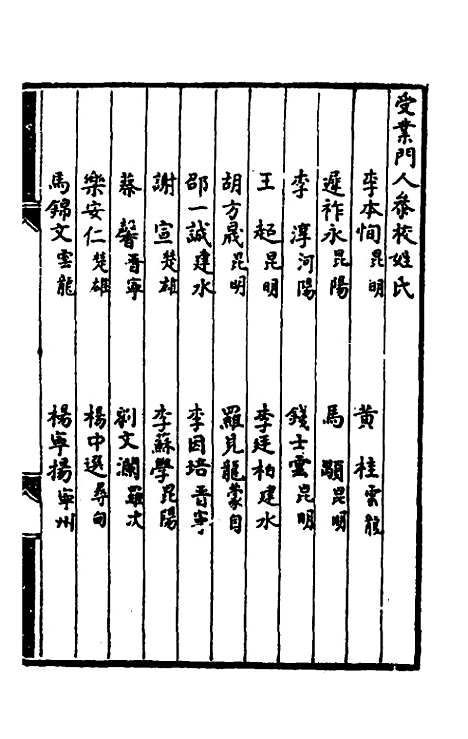 受業門人叅校姓氏
李本恂昆明　黄桂雲龍
遲祚永昆陽　馬顯昆明
李淳河陽　錢士雲昆明
王超昆明　李廷柏建水
胡方晟昆明　羅見龍蒙自
邵一誠建水　李因培晋寧
謝宣楚雄　李蘇學昆陽
蔡馨晋寧　劉文瀾羅次
樂安仁楚雄　楊中選尋甸
馬錦文雲龍　楊寧揚寧州